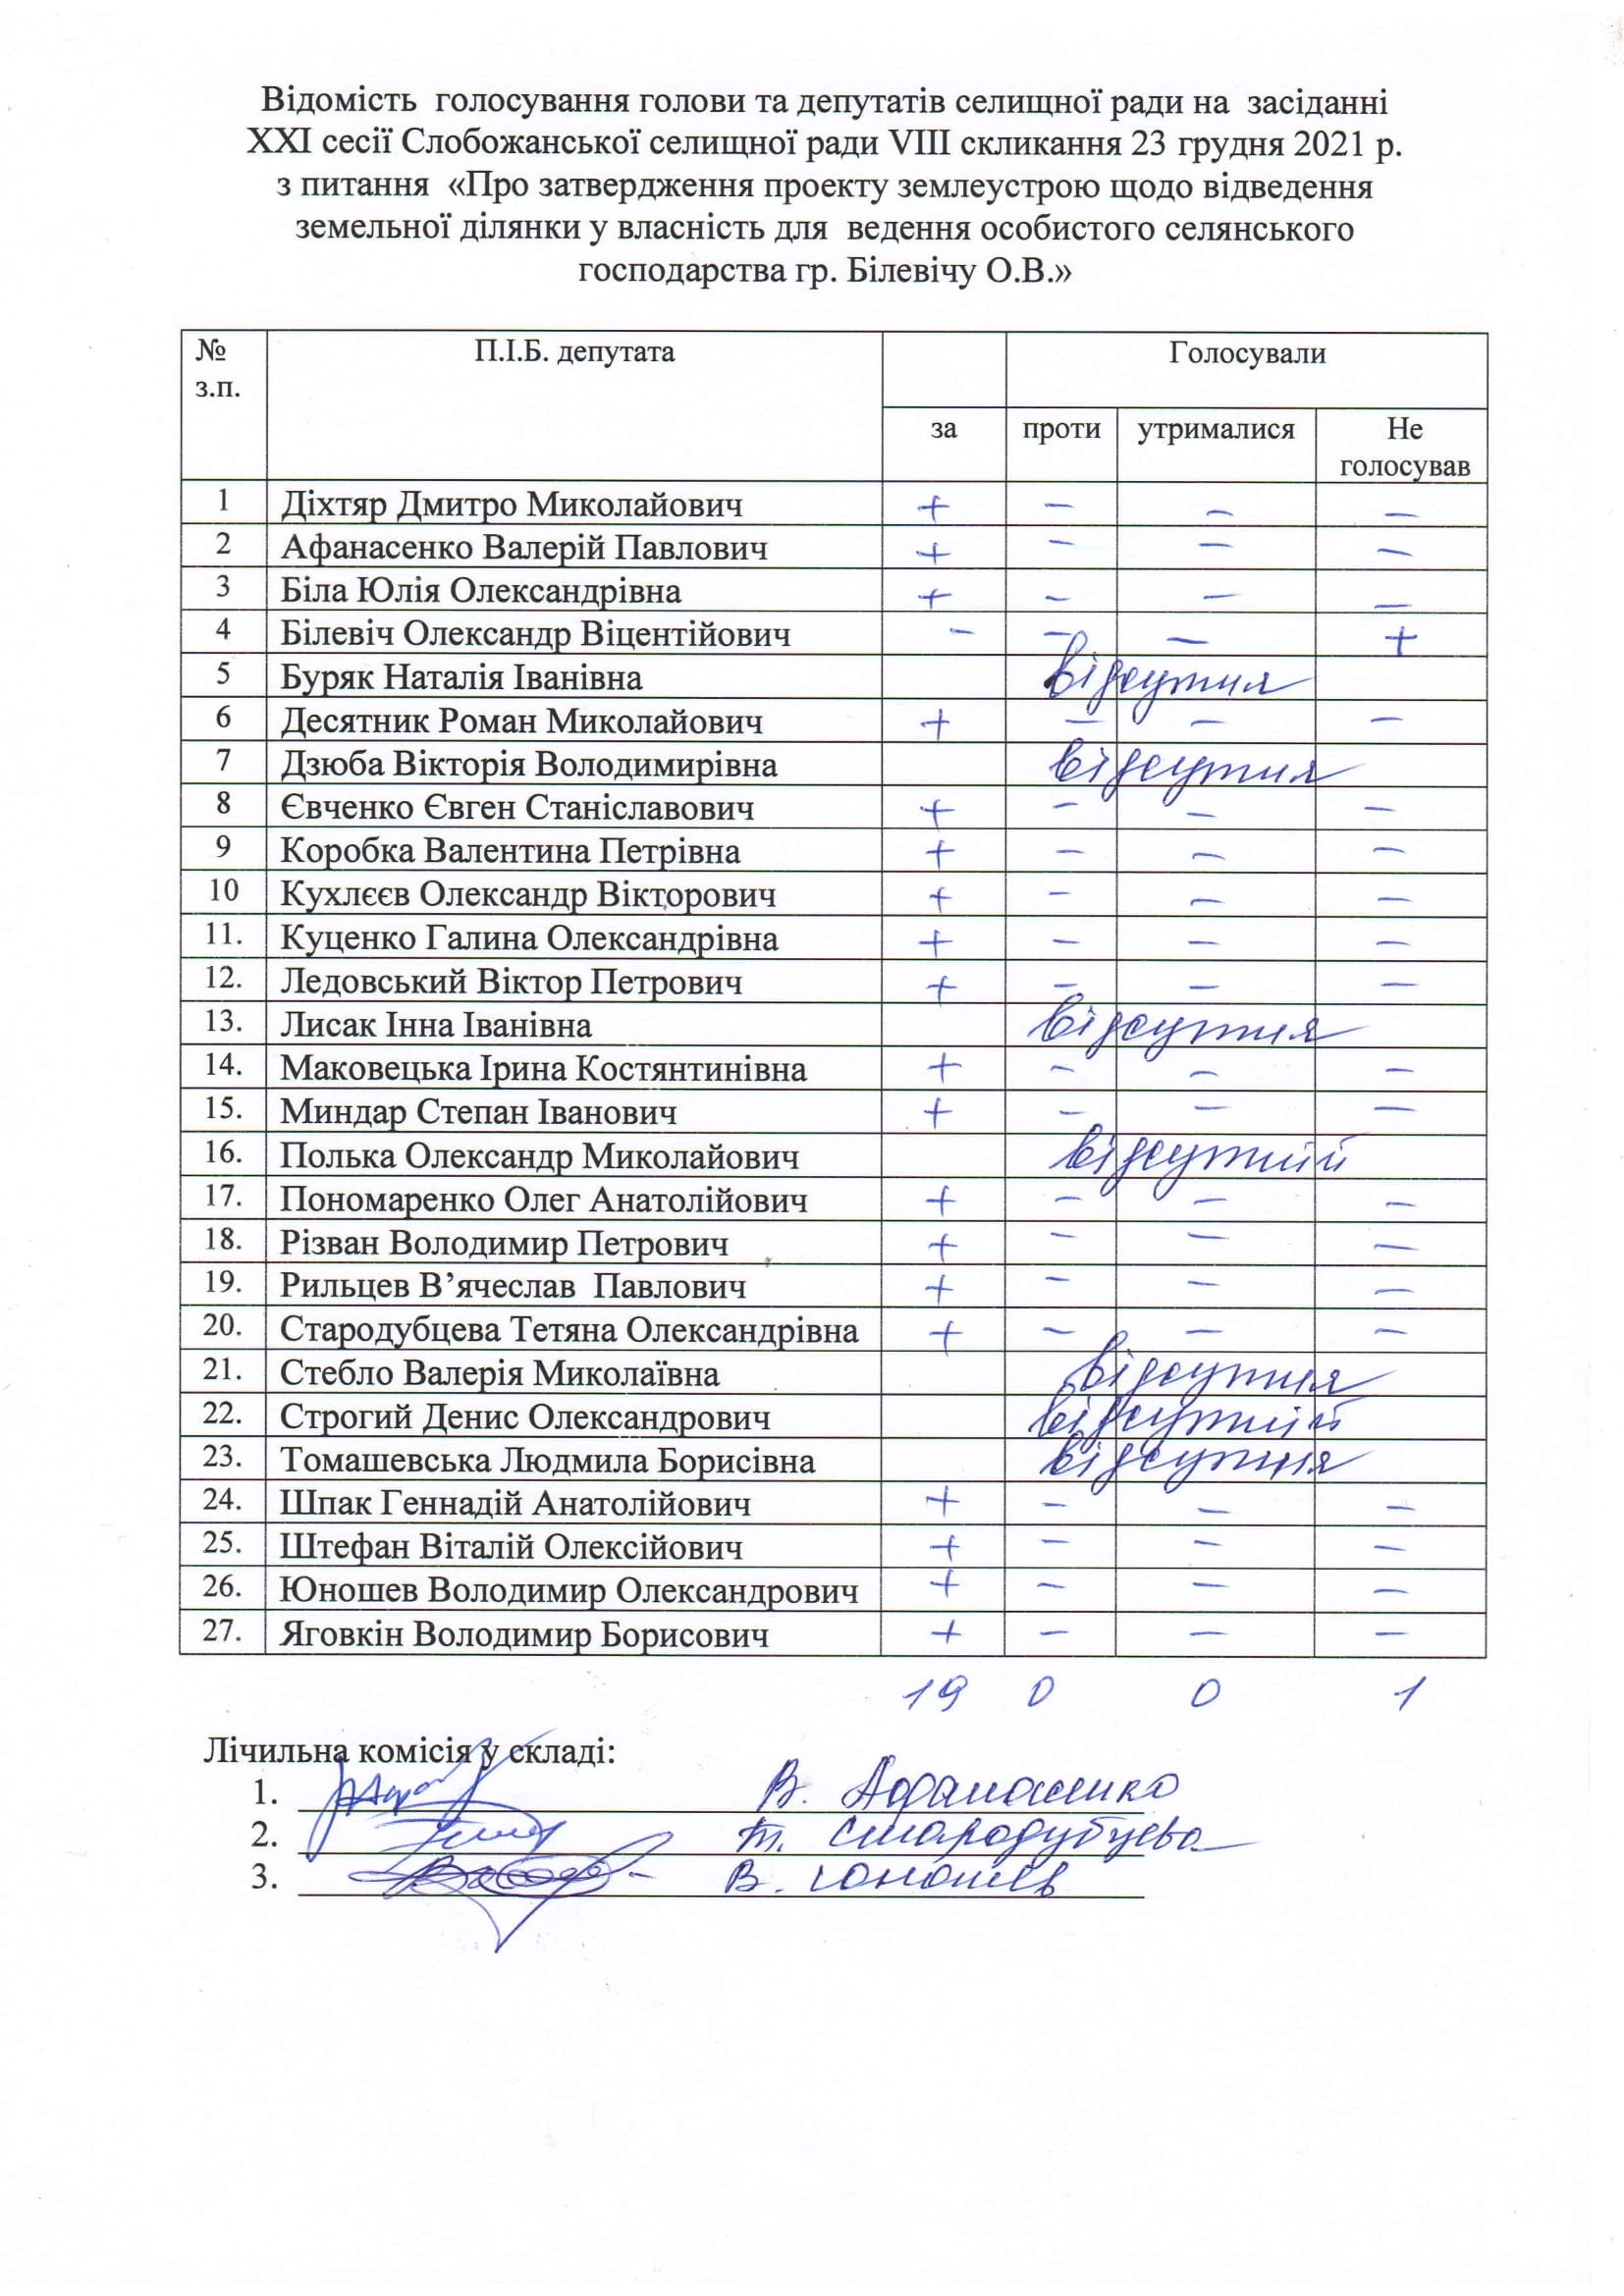 Відомість голосування голови та депутатів селищної ради на засіданні
XXI сесії Слобожанської селищної ради VIII скликання 23 грудня 2021 р.
з питання «Про затвердження проекту землеустрою щодо відведення
земельної ділянки у власність для ведення особистого селянського
господарства гр. Білевічу О.В.»
№ з.п. П.І.Б. депутата Голосували
за проти утрималися Не голосував
1 Діхтяр Дмитро Миколайович + – – –
2 Афанасенко Валерій Павлович + – – –
3 Біла Юлія Олександрівна + – – –
4 Білевіч Олександр Віцентійович – – – +
5 Буряк Наталія Іванівна відсутня
6 Десятник Роман Миколайович + – – –
7 Дзюба Вікторія Володимирівна відсутня
8 Євченко Євген Станіславович + – – –
9 Коробка Валентина Петрівна + – – –
10 Кухлєєв Олександр Вікторович + – – –
11. Куценко Галина Олександрівна + – – –
12. Ледовський Віктор Петрович + – – –
13. Лисак Інна Іванівна відсутня
14. Маковецька Ірина Костянтинівна + – – –
15. Миндар Степан Іванович + – – –
16. Полька Олександр Миколайович відсутній
17. Пономаренко Олег Анатолійович + – – –
18. Різван Володимир Петрович + – – –
19. Рильцев В’ячеслав Павлович + – – –
20. Стародубцева Тетяна Олександрівна + – – –
21. Стебло Валерія Миколаївна відсутня
22. Строгий Денис Олександрович відсутній
23. Томашевська Людмила Борисівна відсутня
24. Шпак Геннадій Анатолійович + – – –
25. Штефан Віталій Олексійович + – – –
26. Юношев Володимир Олександрович + – – –
27. Яговкін Володимир Борисович + – – –
19 0 0 1
Лічильна комісія у складі:
1. В. Афанасенко
2. Т. Стародубцева
3. В. Юношев